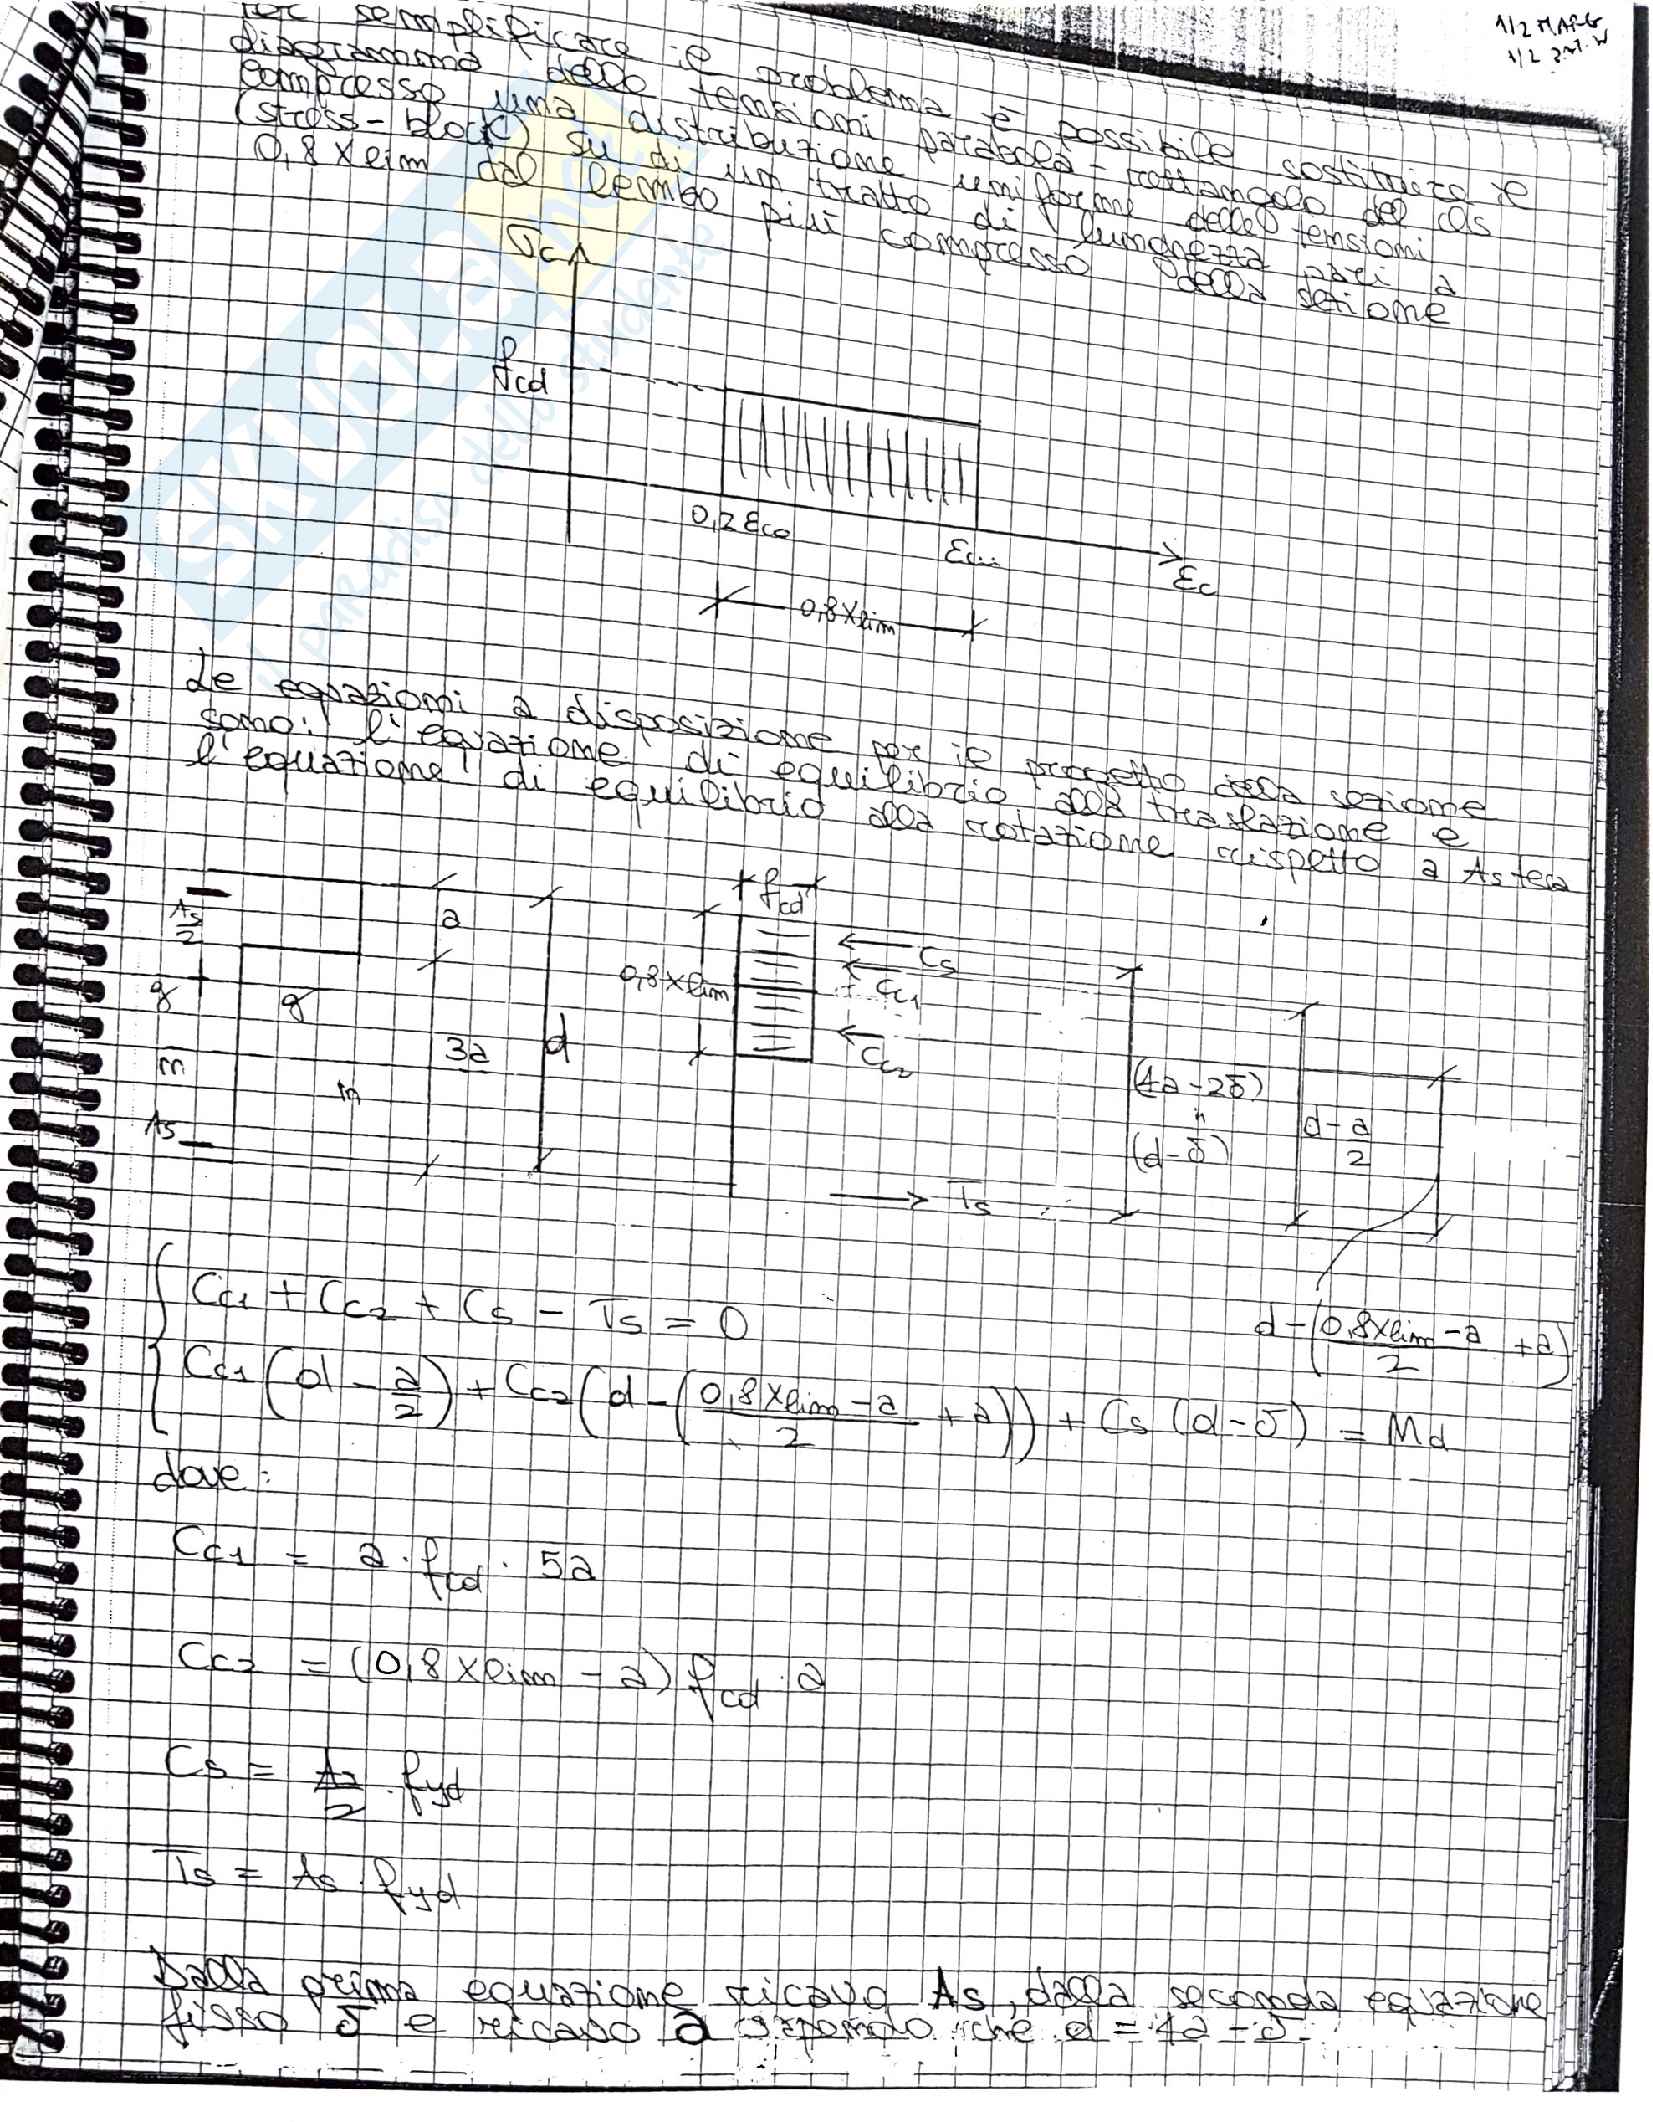 Per semplificare il problema è possibile sostituire il
diagramma delle tensioni parabola-rettangolo del cls
compresso una distribuzione uniforme delle tensioni
(stress-block) su di un tratto di lunghezza pari a
0,8 xlim dal lembo più compresso della sezione
1/2 MARG
σc
fcd
0,2 εco
εcu
εc
0,8 xlim
Le equazioni a disposizione per il progetto della sezione
sono: l'equazione di equilibrio alla traslazione e
l'equazione di equilibrio alla rotazione rispetto a As tesa
As/2
a
3a
d
As
fcd
0,8 xlim
Cs
Cc1
Cc2
Ts
(4a-2δ)
"
(d-δ)
d - a/2
d - ((0,8xlim - a)/2 + a)
Cc1 + Cc2 + Cs - Ts = 0
Cc1 (d - a/2) + Cc2 (d - ((0,8 xlim - a)/2 + a)) + Cs (d - δ) = Md
dove:
Cc1 = a · fcd · 5a
Cc2 = (0,8 xlim - a) fcd · a
Cs = As/2 · fyd
Ts = As · fyd
Dalla prima equazione ricavo As, dalla seconda equazione
fisso δ e ricavo a sapendo che d = 4a - δ.
SKUOLA.net
il paradiso dello studente